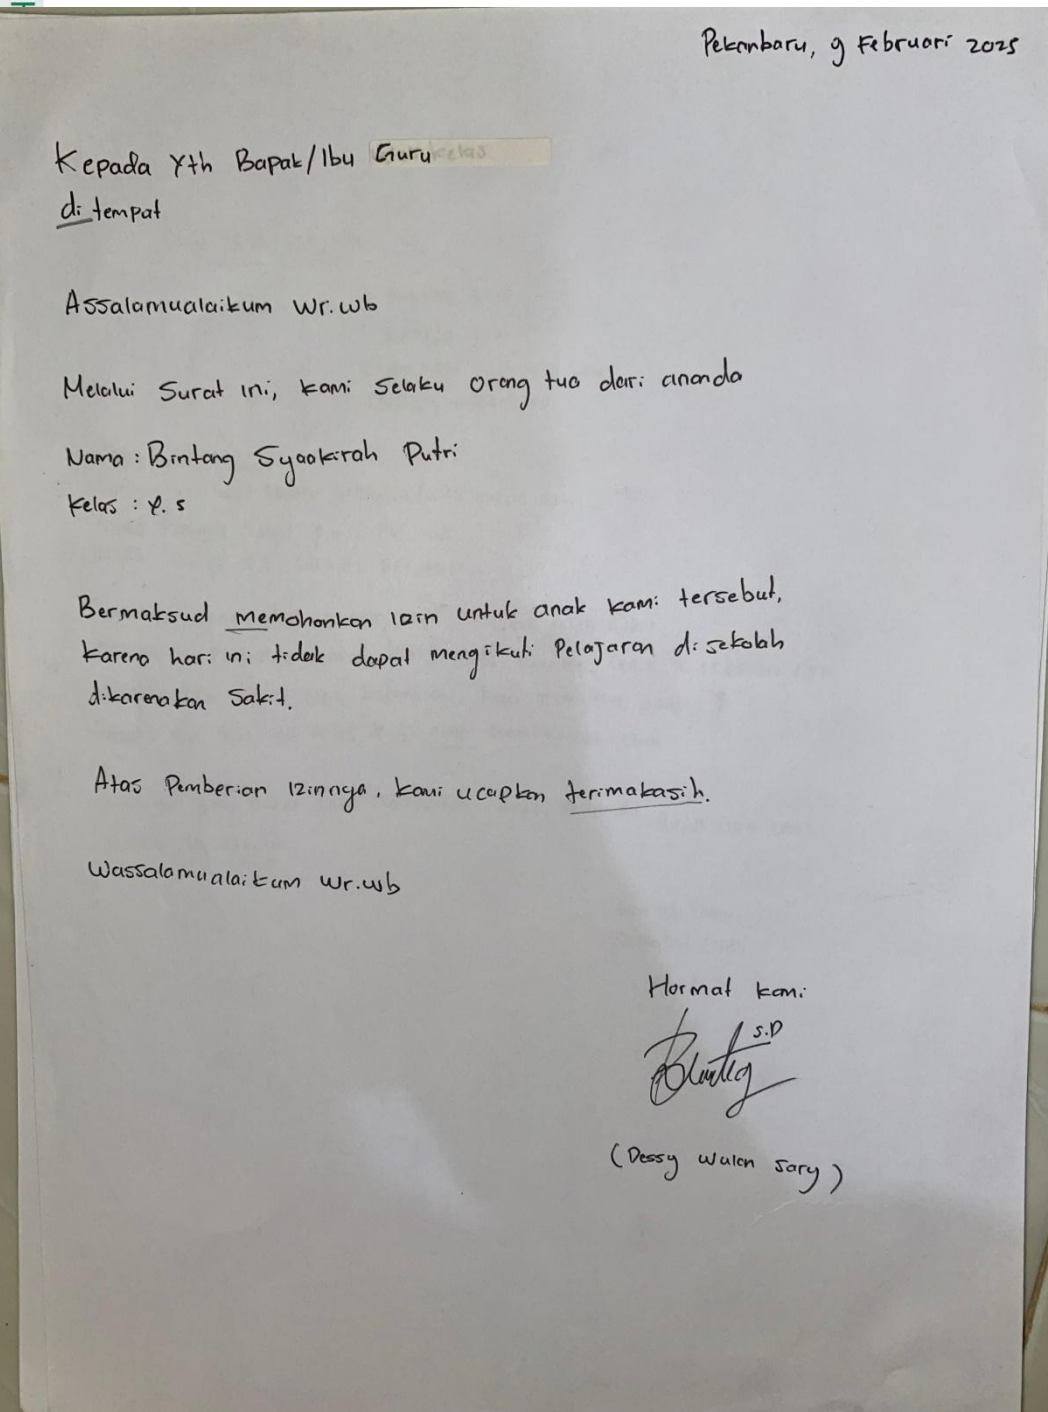 Pekanbaru, 9 Februari 2025
Kepada Yth Bapak/Ibu Guru kelas
di tempat
Assalamualaikum Wr.wb
Melalui Surat ini, kami selaku orang tua dari ananda
Nama : Bintang Syaakirah Putri
Kelas : 4. 5
Bermaksud memohonkan izin untuk anak kami tersebut,
karena hari ini tidak dapat mengikuti Pelajaran di sekolah
dikarenakan Sakit.
Atas Pemberian izinnya, kami ucapkan terimakasih.
Wassalamualaikum Wr.wb
Hormat kami
S.D
(Dessy Wulan Sary)